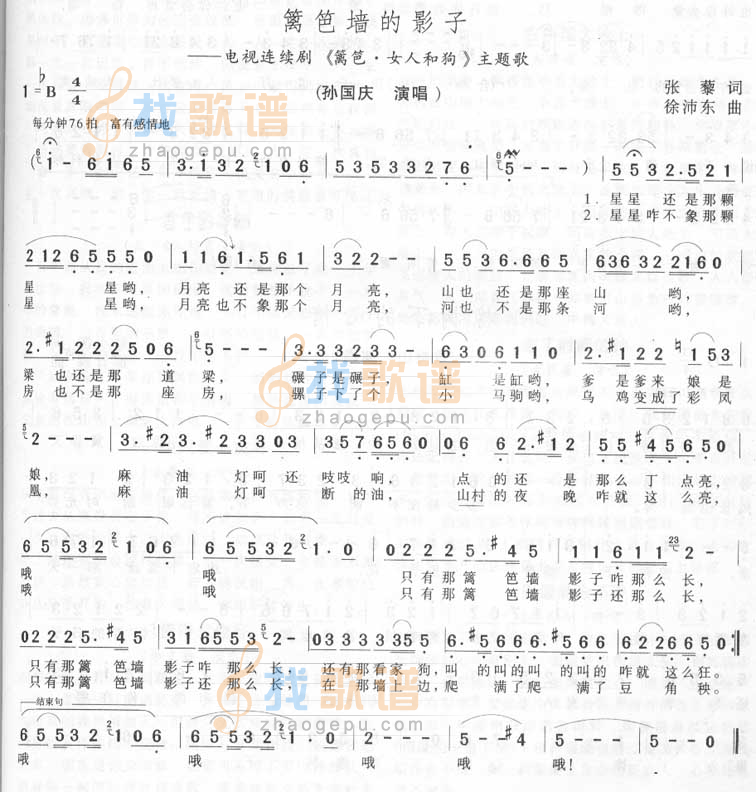 篱笆墙的影子
——电视连续剧《篱笆·女人和狗》主题歌
1=♭B 4/4 (孙国庆 演唱) 张藜 词
徐沛东 曲
每分钟76拍 富有感情地
找歌谱
zhaogepu.com
(i - 6165 | 3.i32 2106 | 53533276 | 5 - - - ) | 5532.521
1.星星 还是那颗
2.星星咋不象那颗
21265550 | 1161.561 | 322 - - | 5536.665 | 636322220
星 星哟 月亮 还是那个 月亮, 山也 还是那座 山 哟,
星 星哟 月亮也不象那个 月亮, 河也 不是那条 河 哟,
2.#1222506 | 5 - - - | 3.332233 - | 63061110 | 2.#122 2153
梁也还是那 道梁, 碾子是碾子, 缸 是缸哟, 爹 是爹来 娘是
房也不是那 座房, 骡子下了个 小 马驹哟, 乌 鸡变成了彩凤
找歌谱
zhaogepu.com
2 - - - | 3.#23.#23303 | 35765600 | 06 62.#12 | 55#45650
娘, 麻 油 灯呵还 吱吱响, 点 的还 是 那么 丁 点亮,
凰, 麻 油 灯呵 断的油, 山村的夜 晚 咋就 这 么亮,
65532 2106 | 65532 1.0 | 02225.#45 | 311611 2 -
哦 哦 只有那篱 笆墙 影子咋那么长,
哦 哦 只有那篱 笆墙 影子还那么长,
02225.#45 | 3165532 - | 03333355 | 6.#5666.#566 | 6226650 :‖
只有那篱 笆墙 影子咋 那么长, 还有那看家 狗,叫 的叫的叫,的叫的 咋就 这么狂。
只有那篱 笆墙 影子还 那么长, 在 那墙上边,爬 满了爬 满了豆 角秧。
找歌谱
zhaogepu.com
结束句
65532 2106 | 65532 1.0 | 2 - - 2 | 5 - - #4 | 5 - - - | 5 - - 0 ‖
哦 哦 哦 哦 哦!